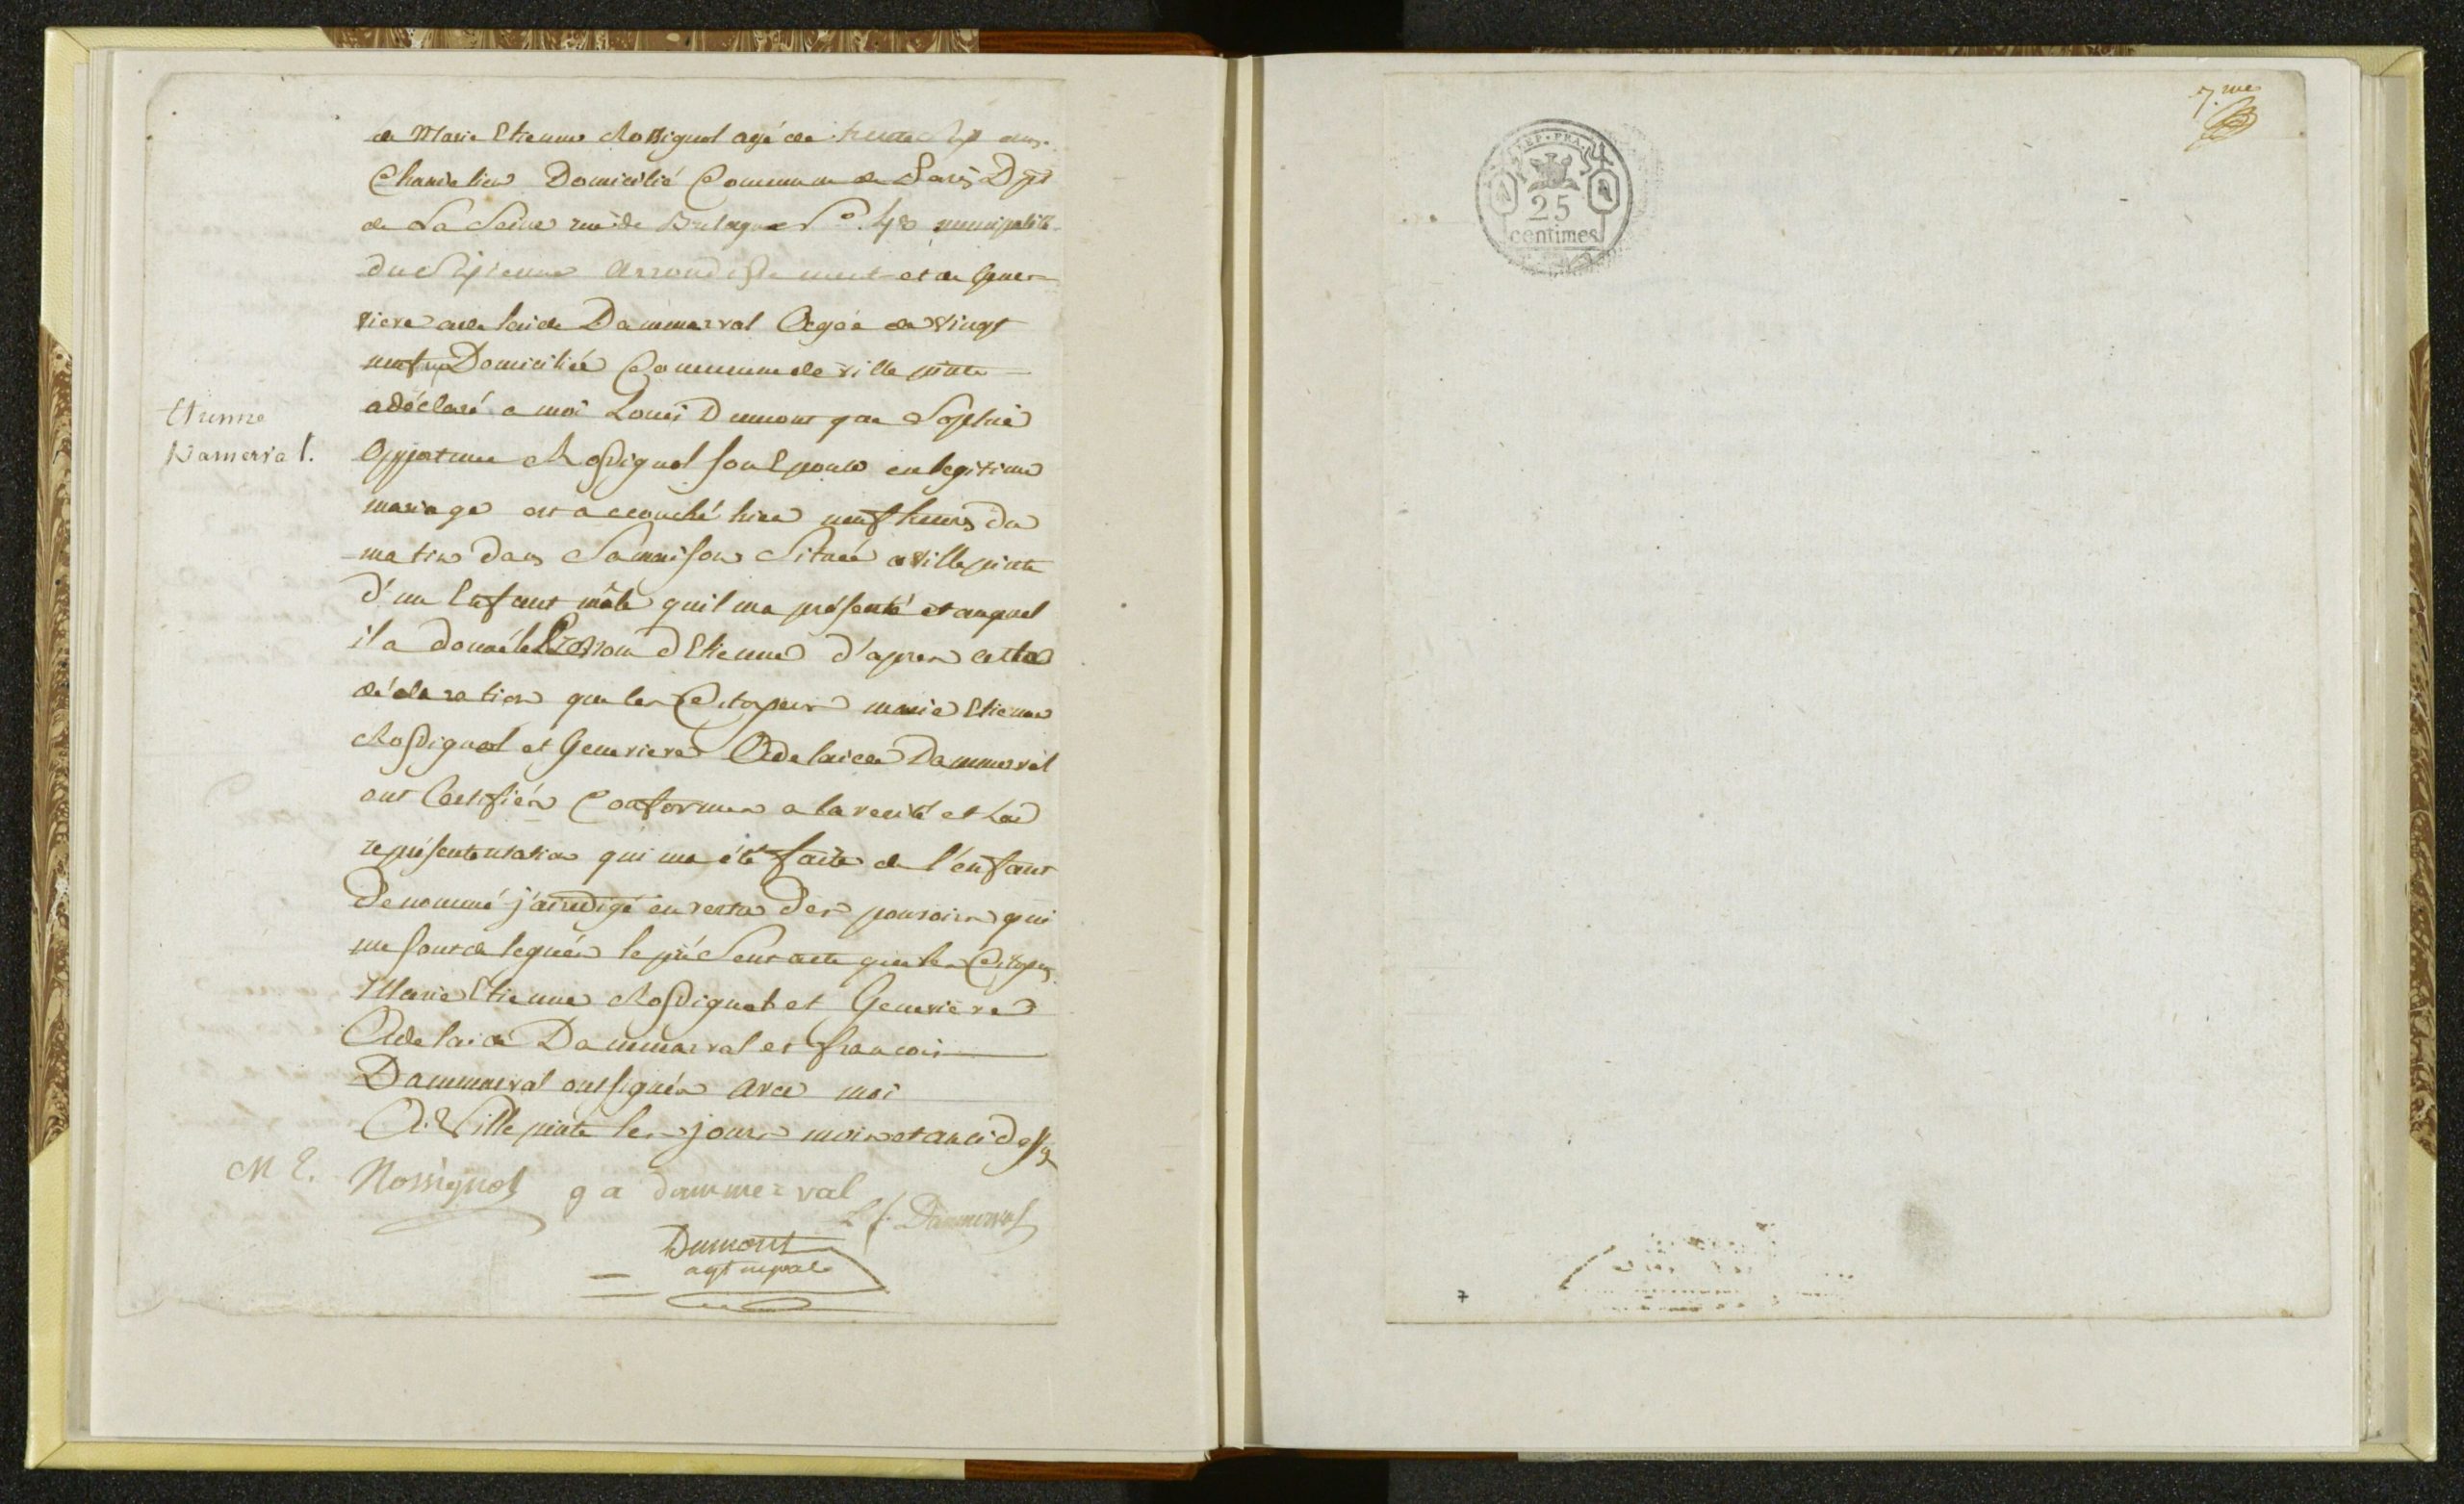 de Marie Etienne Rossignol agé de trente sept ans
Chandelier Domicilié Commune de Paris Dpt
de La Seine rue de Bretagne N° 48 municipalité
du Septieme arrondissement et de Gene-
vieve adelaide Dammerval Agée de vingt
neuf ans Domiciliée Commune de villepinte
a déclaré a moi Louis Dumont que Sophie
Opportune Rossignol son Epouse en legitime
mariage est accouché hier neuf heures du
matin dans Sa maison Située a Villepinte
d'un Enfant mâle qu'il ma présenté et auquel
il a donné le Prenom d'Etienne d'apres cette
déclaration que les Citoyens marie Etienne
Rossignol et Genevieve Adelaide Dammerval
ont Certifiés Conformes a la verité et La
représentention qui ma été faite de l'enfant
Denommé j'ai redigé en vertu des pouvoirs qui
me sont delegués le présent acte que les Citoyens
Marie Etienne Rossignol et Genevieve
Adelaide Dammerval et francois
Dammerval ont signés avec moi
A Villepinte les jours mois et an ci dessus
Etienne
Damerval.
M E. Rossignol g a dammerval
L f. Dammerval
Dumont
agt mpal
7.me
REP. FRA.
25
centimes
7